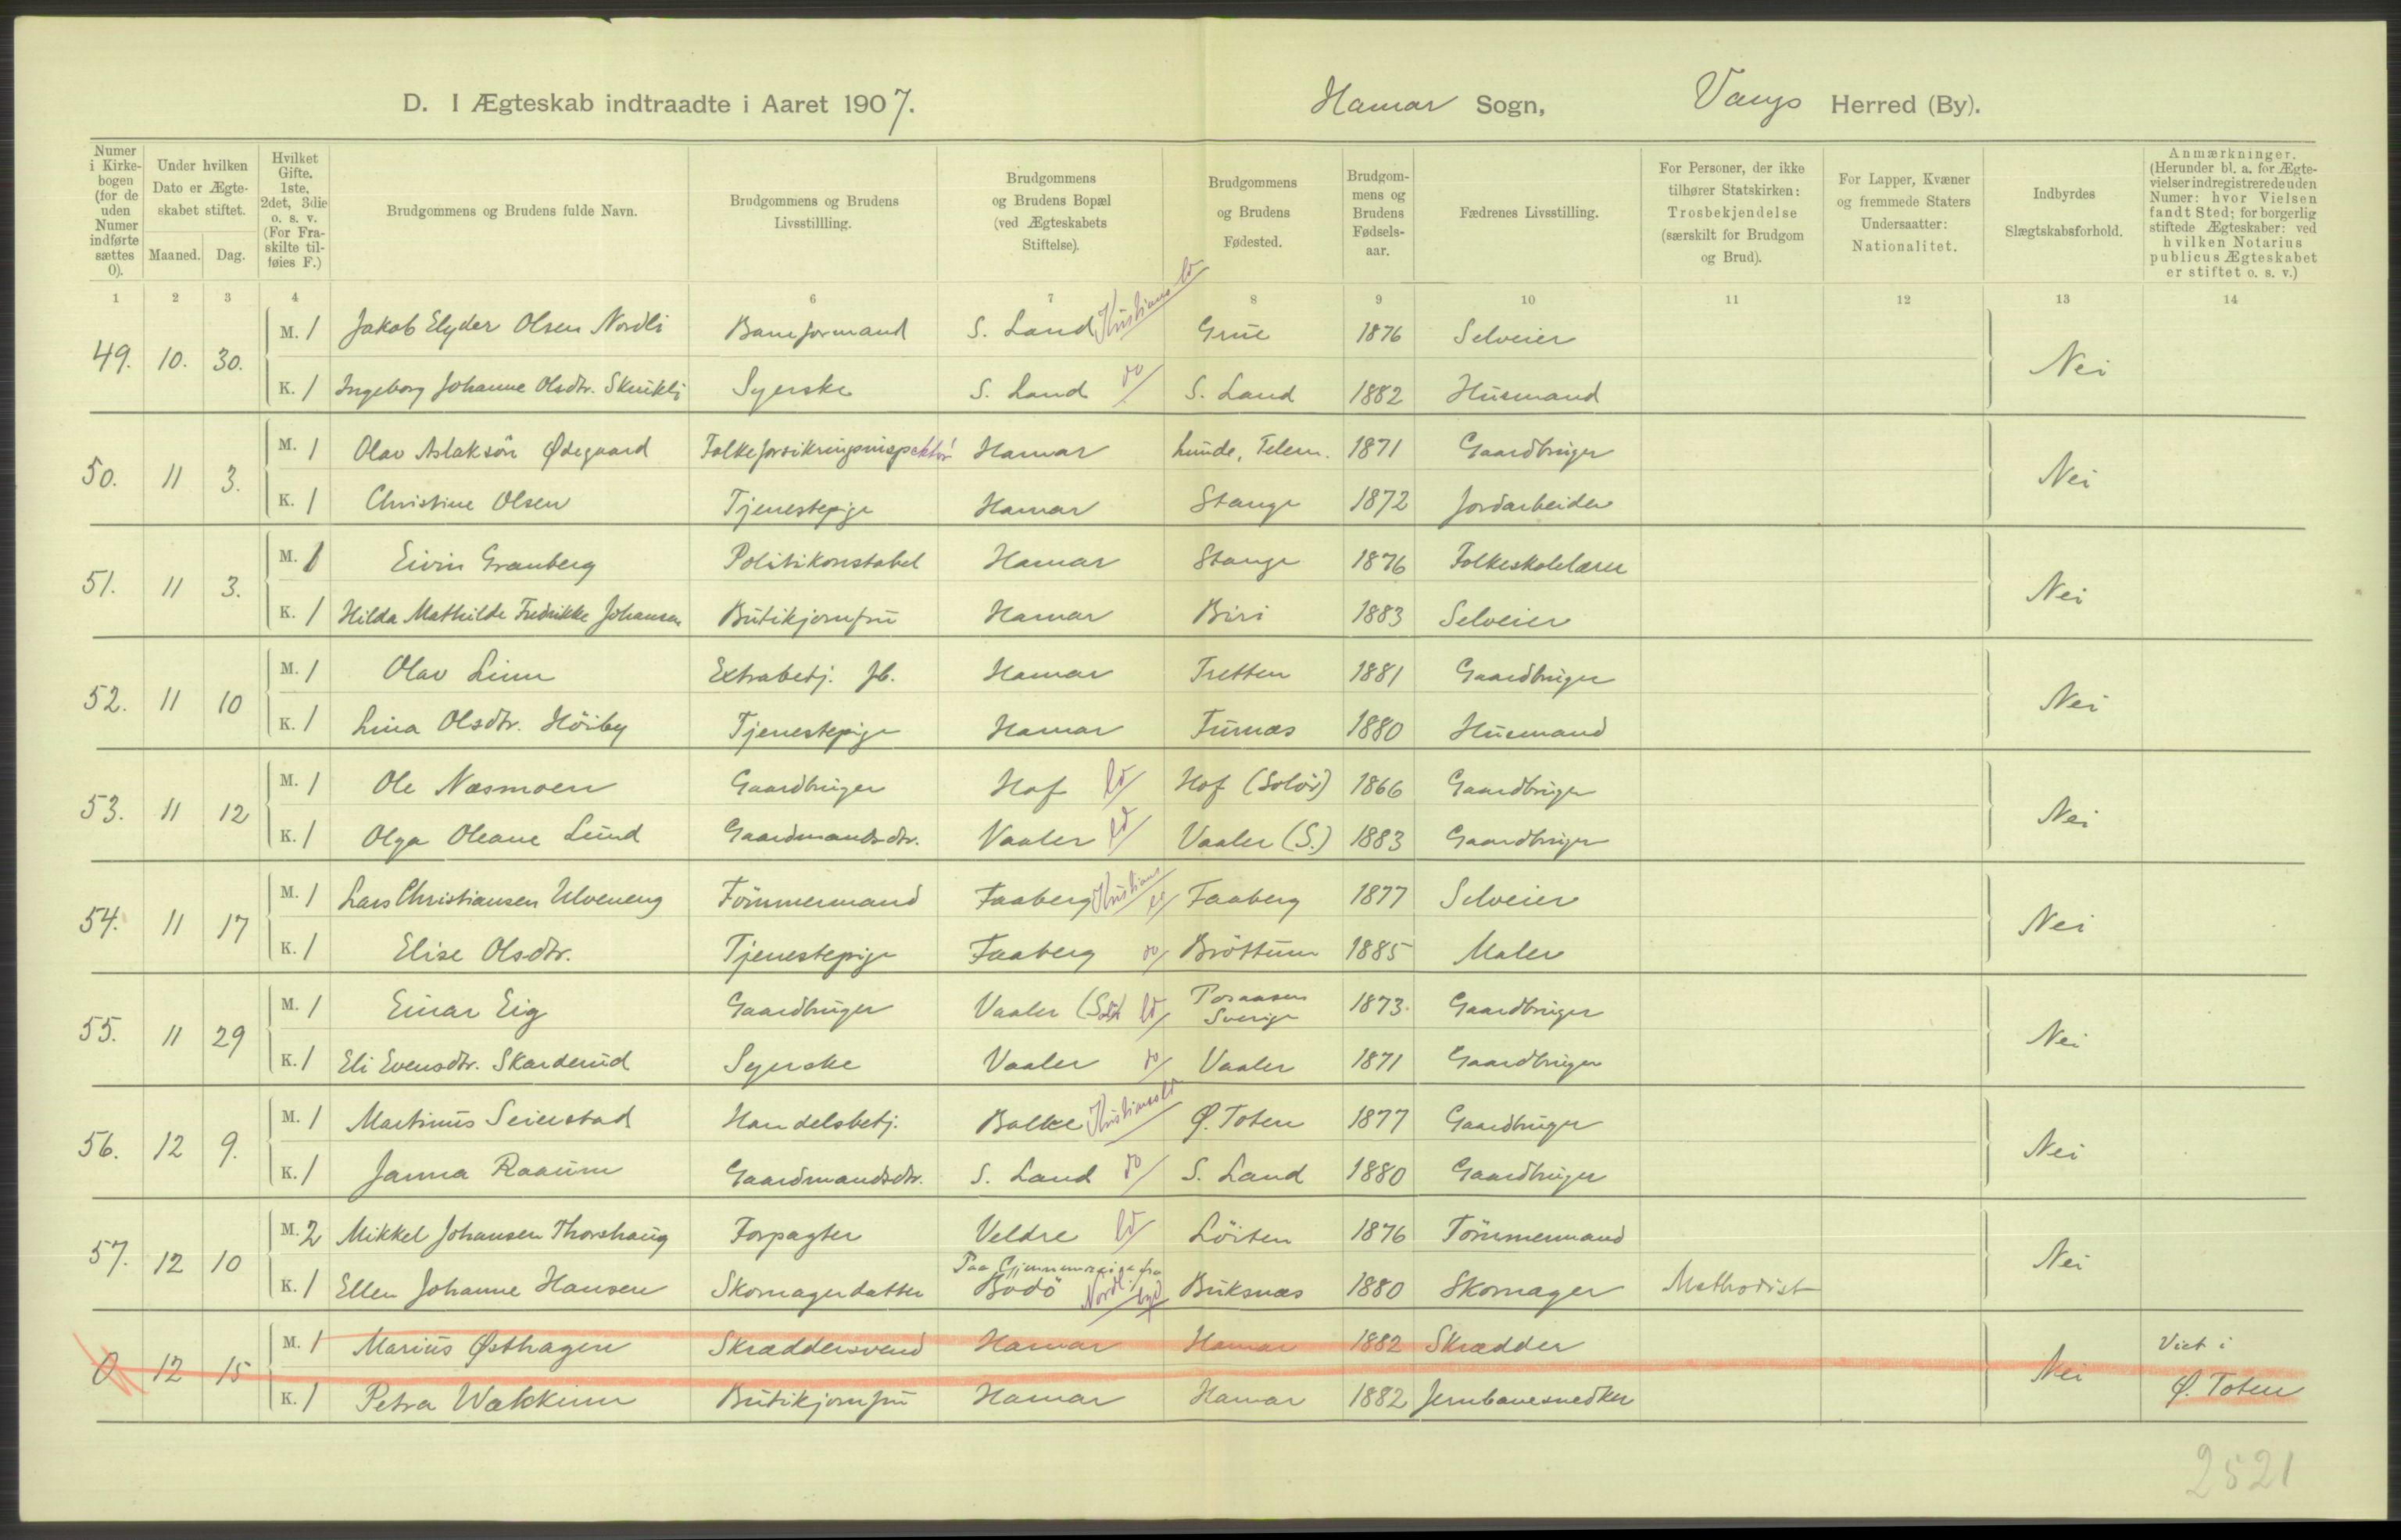 D. I Ægteskab indtraadte i Aaret 1907. Hamar Sogn, Vangs Herred (By).
Numer i Kirkebogen (for de uden Numer indførte sættes 0).
Under hvilken Dato er Ægteskabet stiftet.
Maaned. Dag.
Hvilket Gifte. 1ste, 2det, 3die o. s. v. (For Fraskilte tilføies F.)
Brudgommens og Brudens fulde Navn.
Brudgommens og Brudens Livsstillling.
Brudgommens og Brudens Bopæl (ved Ægteskabets Stiftelse).
Brudgommens og Brudens Fødested.
Brudgommens og Brudens Fødselsaar.
Fædrenes Livsstilling.
For Personer, der ikke tilhører Statskirken: Trosbekjendelse (særskilt for Brudgom og Brud).
For Lapper, Kvæner og fremmede Staters Undersaatter: Nationalitet.
Indbyrdes Slægtskabsforhold.
Anmærkninger. (Herunder bl. a. for Ægtevielser indregistrerede uden Numer: hvor Vielsen fandt Sted; for borgerlig stiftede Ægteskaber: ved hvilken Notarius publicus Ægteskabet er stiftet o. s. v.)
1 2 3 4 6 7 8 9 10 11 12 13 14
49. 10. 30. M. 1 Jakob Elyder Olsen Nordli Baneformand S. Land Kristians ld Grue 1876 Selveier Nei
K. 1 Ingeborg Johanne Olsdtr. Skrukli Syerske S. Land do S. Land 1882 Husmand
50. 11 3. M. 1 Olav Aslaksön Ødegaard Folkeforsikringsinspektör Hamar Lunde, Telem. 1871 Gaardbruger Nei
K. 1 Christine Olsen Tjenestepige Hamar Stange 1872 Jordarbeider
51. 11 3. M. 1 Eivin Granberg Politikonstabel Hamar Stange 1876 Folkeskolelærer Nei
K. 1 Hilda Mathilde Fredrikke Johansen Butikjomfru Hamar Biri 1883 Selveier
52. 11 10 M. 1 Olav Linn Extrabetj. Jb. Hamar Tretten 1881 Gaardbruger Nei
K. 1 Lina Olsdtr. Höiby Tjenestepige Hamar Furnæs 1880 Husmand
53. 11 12 M. 1 Ole Næsmoen Gaardbruger Hof ld Hof (Solör) 1866 Gaardbruger Nei
K. 1 Olga Oleane Lund Gaardmandsdtr. Vaaler ld Vaaler (S.) 1883 Gaardbruger
54. 11 17 M. 1 Lars Christiansen Ulveneng Tömmermand Faaberg Kristians ld Faaberg 1877 Selveier Nei
K. 1 Elise Olsdtr. Tjenestepige Faaberg do Bröttum 1885 Maler
55. 11 29 M. 1 Einar Eig Gaardbruger Vaaler (Sol) ld Sverige 1873. Gaardbruger Nei
K. 1 Eli Evensdtr. Skarderud Syerske Vaaler do Vaaler 1871 Gaardbruger
56. 12 9. M. 1 Martinus Seierstad Handelsbetj. Balke Kristians ld Ø. Toten 1877 Gaardbruger Nei
K. 1 Janna Raaum Gaardmandsdtr. S. Land do S. Land 1880 Gaardbruger
57. 12 10 M. 2 Mikkel Johansen Thorshaug Forpagter Veldre ld Löiten 1876 Tömmermand Nei
Paa Gjennemreise fra
K. 1 Ellen Johanne Hansen Skomagerdatter Bodö Nordl. Buksnæs 1880 Skomager Methodist
0 12 15 M. 1 Marius Østhagen Skræddersvend Hamar Hamar 1882 Skrædder Nei Viet i
K. 1 Petra Wakkinn Butikjomfru Hamar Hamar 1882 Jernbanesnedker Ø. Toten
2521